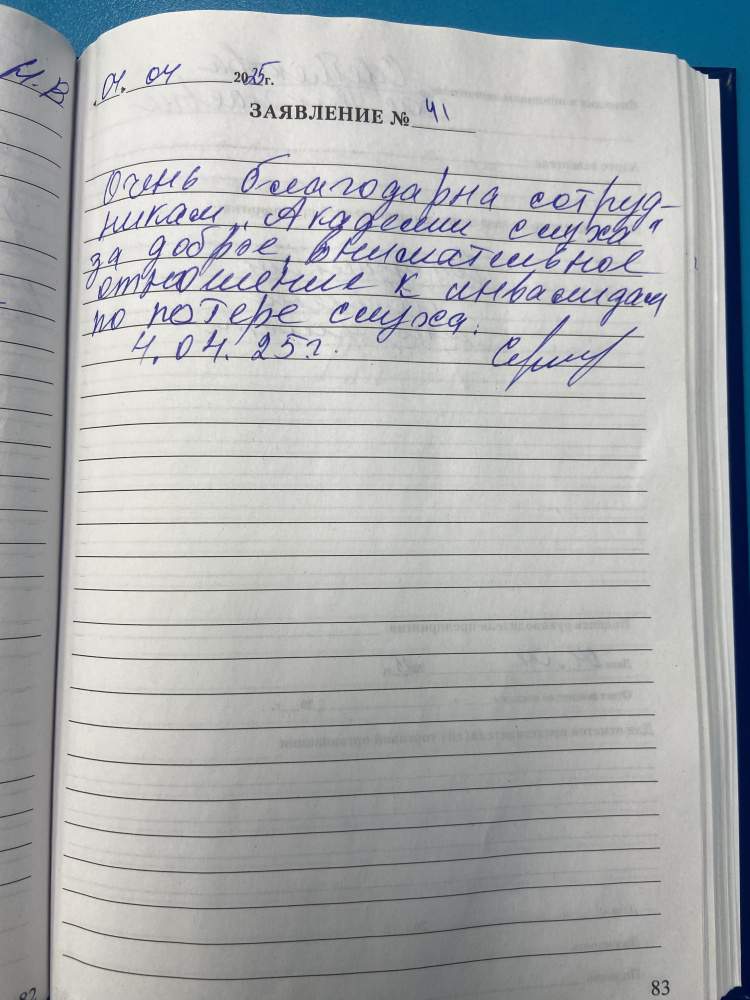 И.В.
04. 04 2025г.
ЗАЯВЛЕНИЕ № 41
Очень благодарна сотруд-
никам „Академии слуха"
за доброе, внимательное
отношение к инвалидам
по потере слуха.
4.04.25г.
82
83